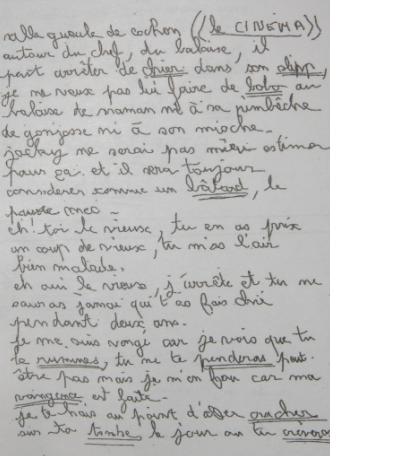 salle gueule de cochon ((le CINÉMA))
autour du chef, du balaise, il
peut arrêter de chier dans son slipp,
je ne veux pas lui faire de bobo au
balaise de maman ni à sa pimbêche
de gonzesse ni à son mioche.
jacky ne serai pas mieu estimer
pour ça et il sera toujour
considerer comme un bâtard, le
pauvre mec -
eh! toi le vieux, tu en as prix
un coup de vieux, tu m'as l'air
bien malade.
eh oui le vieux, j'arrête et tu ne
sauras jamai qui t'as fais chié
pendant deux ans.
je me suis vengé car je vois que tu
te rumines, tu ne te penderas peut-
être pas mais je m'en fou car ma
vangence est faite.
je te hais au point d'aller cracher
sur ta tombe le jour au tu crèveras